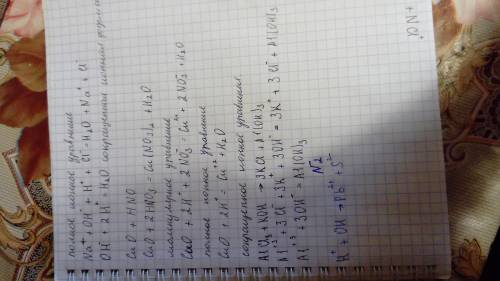 полное ионное уравнение
Na⁺ + OH⁻ + H⁺ + Cl⁻ = H₂O + Na⁺ + Cl⁻
OH⁻ + H⁺ = H₂O сокращённая ионная
CuO + HNO
CuO + 2HNO₃ = Cu(NO₃)₂ + H₂O
молекулярное уравнение
CuO + 2H⁺ + 2NO₃⁻ = Cu²⁺ + 2NO₃⁻ + H₂O
полное ионное уравнение
CuO + 2H⁺ = Cu⁺² + H₂O
сокращенное ионное уравнение
AlCl₃ + KOH → 3KCl + Al(OH)₃
Al⁺³ + 3Cl⁻ + 3K⁺ + 3OH⁻ = 3K⁺ + 3Cl⁻ + Al(OH)₃
Al⁺³ + 3OH⁻ = Al(OH)₃
№2
H⁺ + OH⁻ → Pb²⁺ + S²⁻